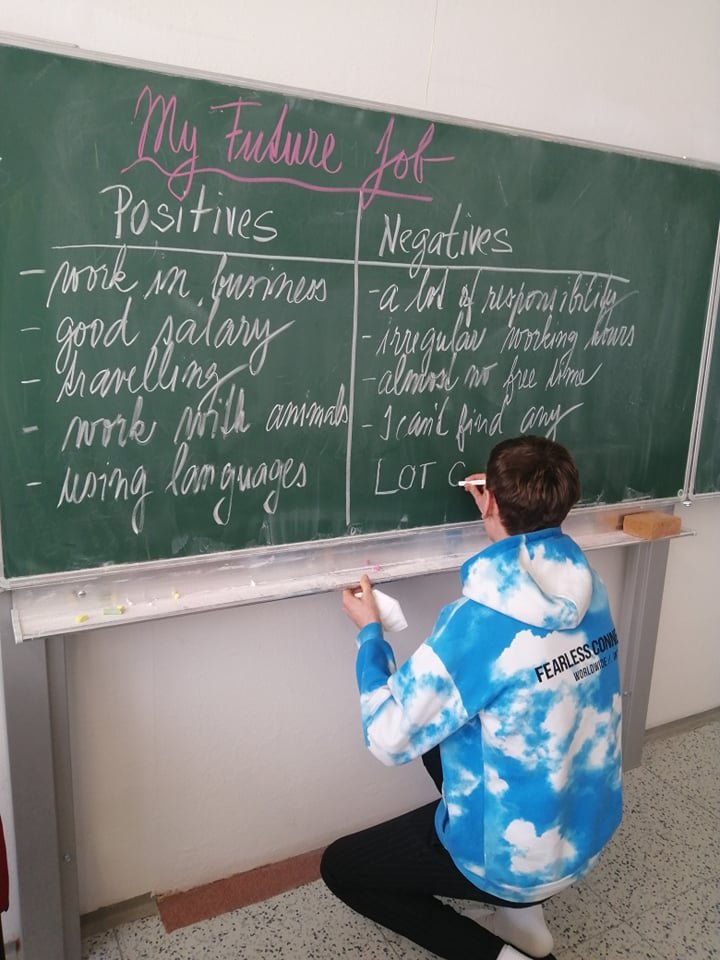 My Future Job
Positives
- work in business
- good salary
- travelling
- work with animals
- using languages
Negatives
- a lot of responsibility
- irregular working hours
- almost no free time
- I can't find any
LOT
FEARLESS
WORLDWIDE /